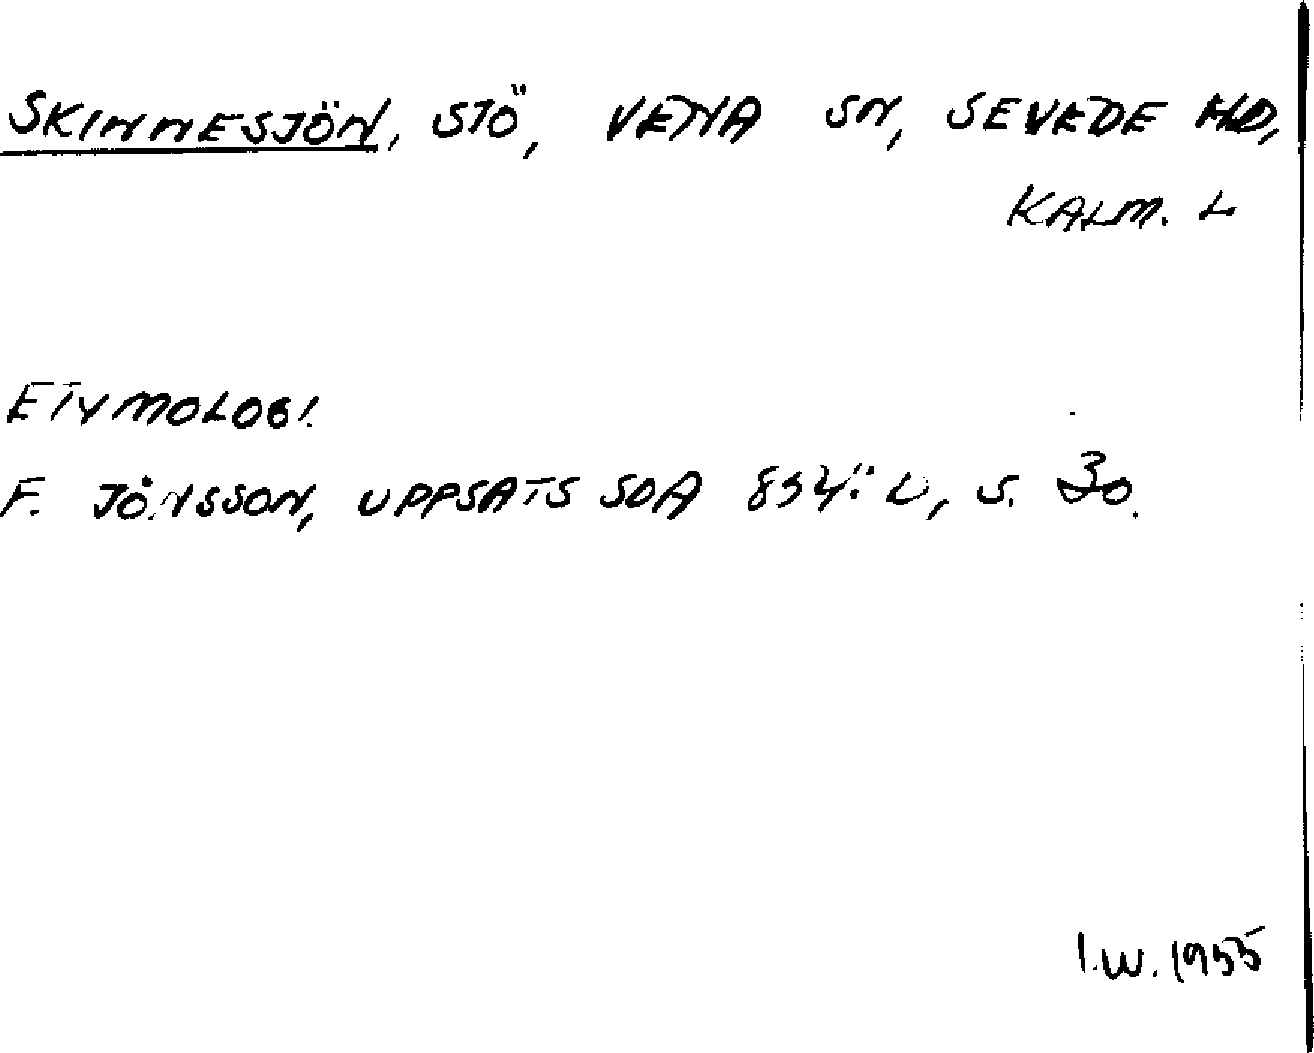 SKINNESJÖN, SJÖ, VENA SN, SEVEDE HD,
KALM. L
ETYMOLOGI.
F. JÖNSSON, UPPSATS SOA 834: L, S. 30.
I.W. 1955